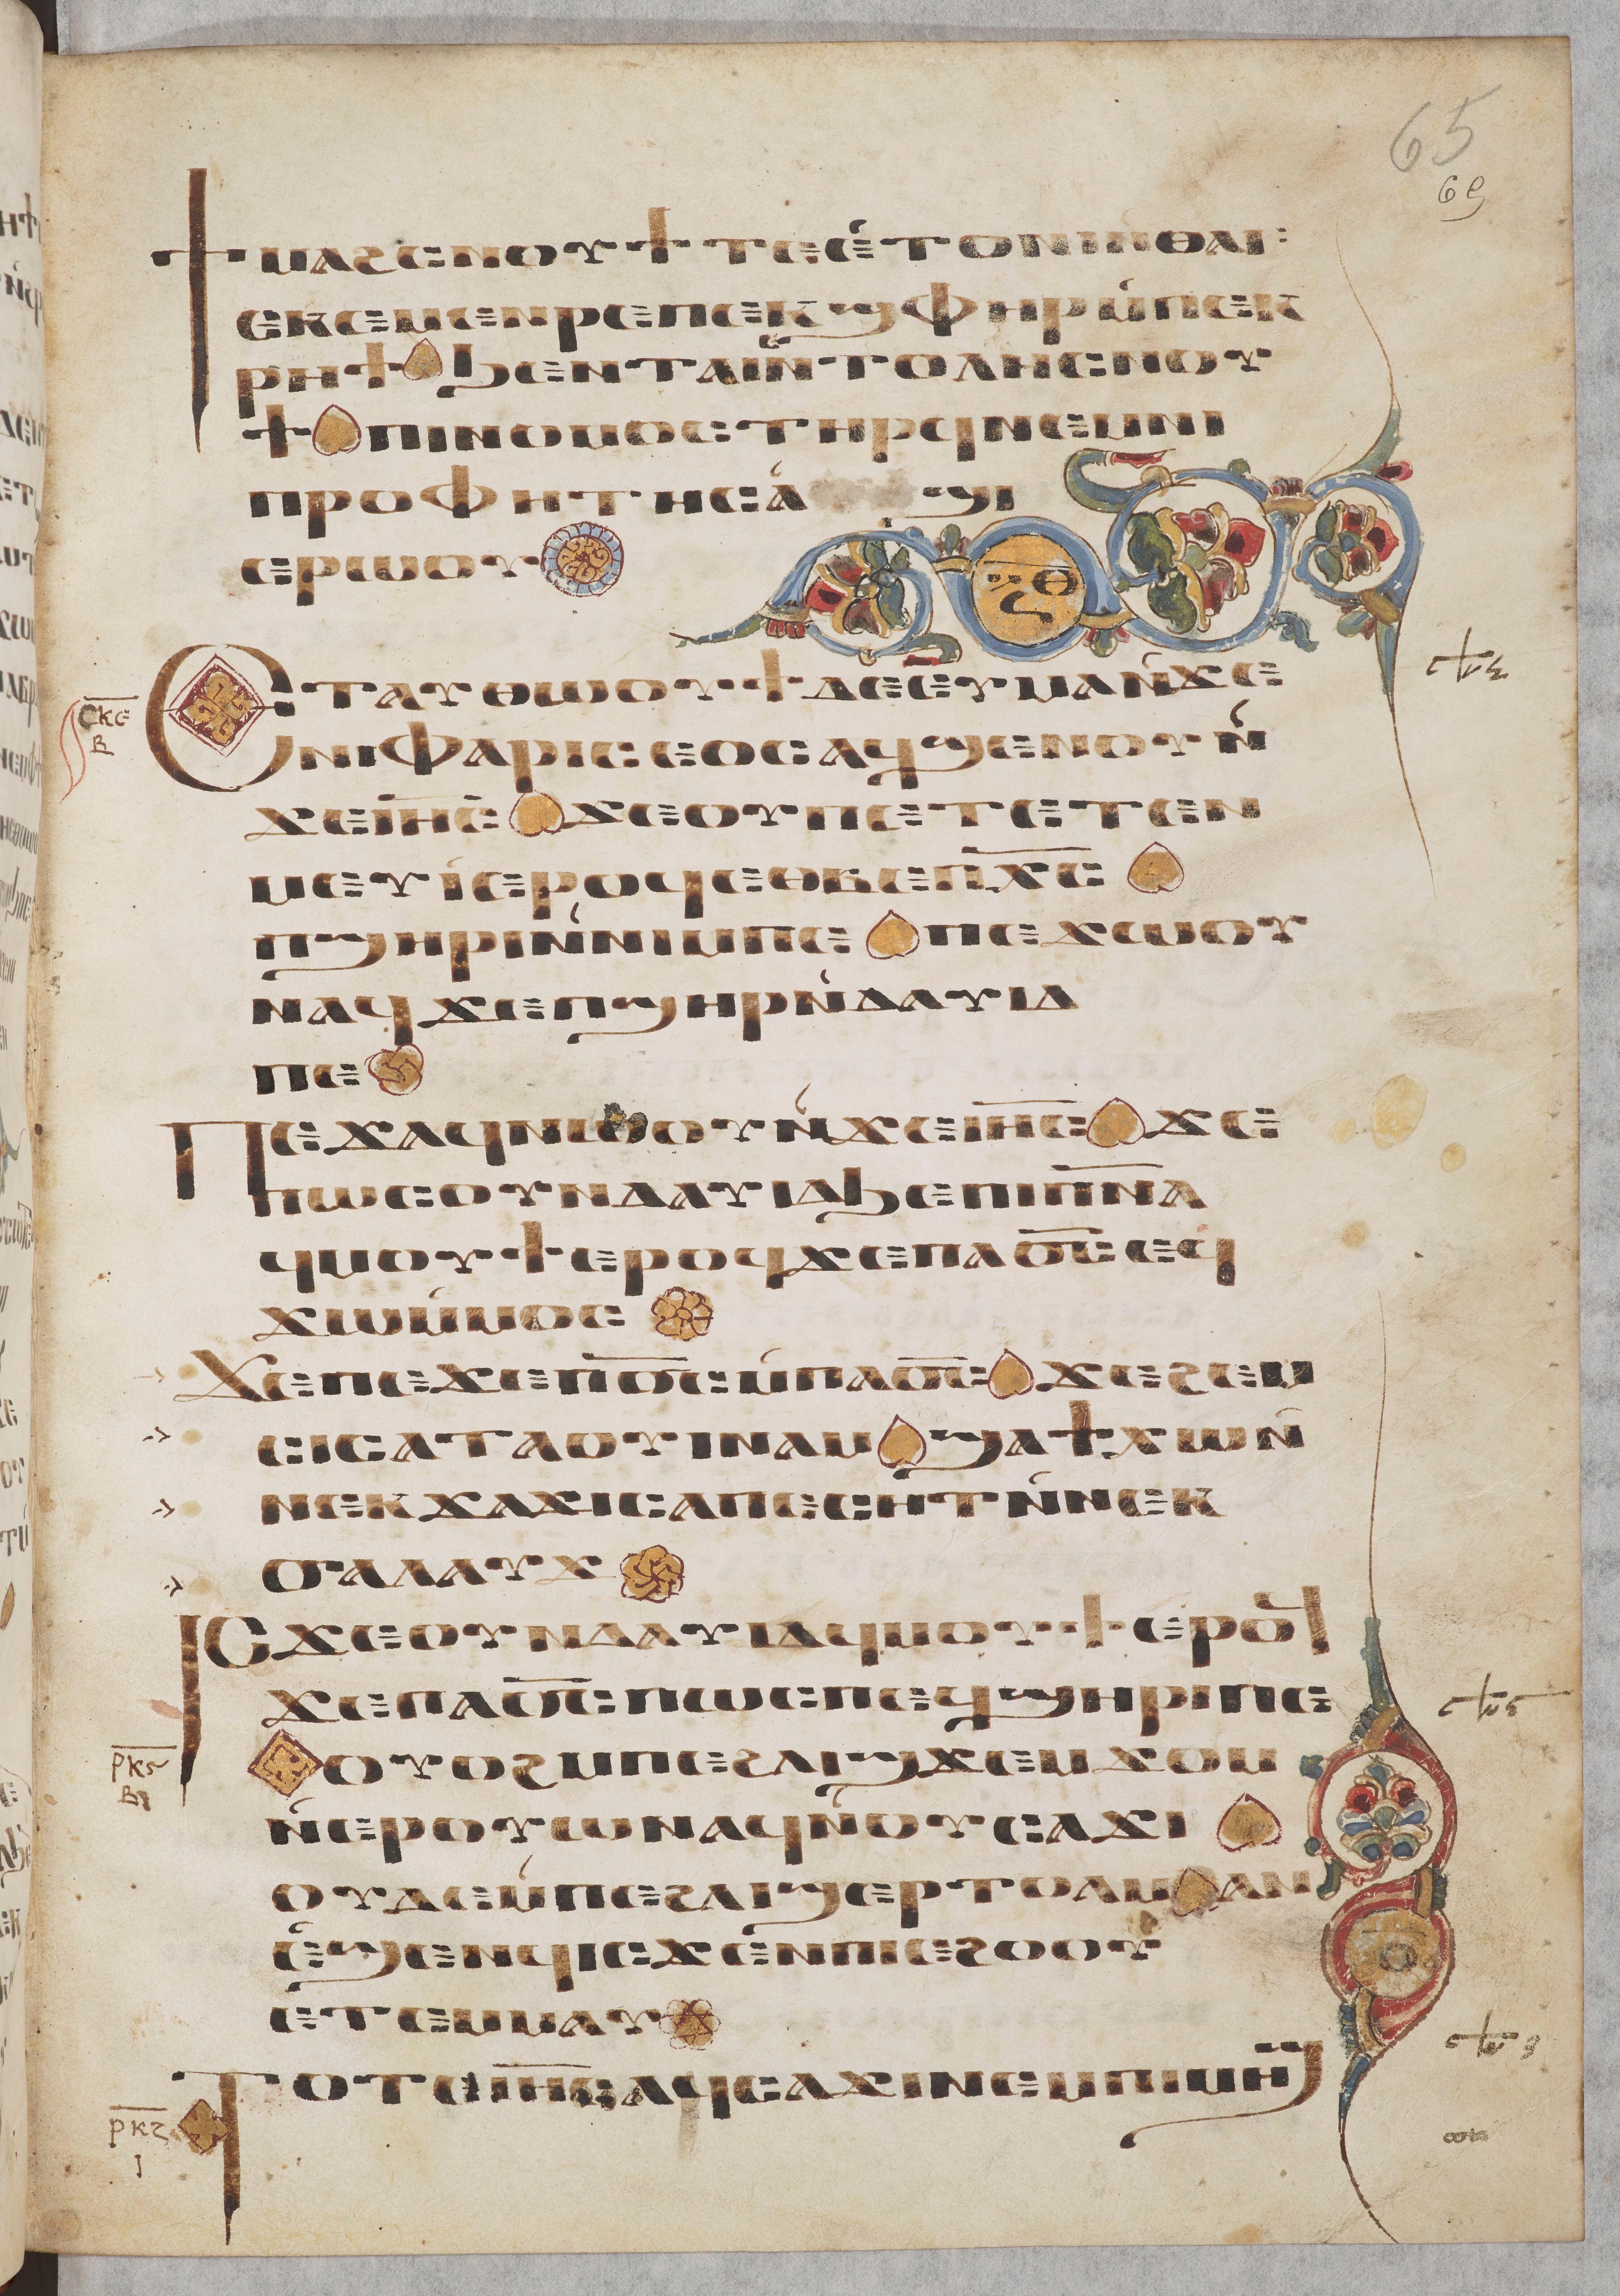 65
69
ϯⲙⲁϩⲥⲛⲟⲩϯ ⲧⲉ ⲉ̇ⲧⲟⲛⲓ ⲛ̀ⲑⲁⲓ:
ⲉⲕⲉⲙⲉⲛⲣⲉ ⲡⲉⲕϣⲫⲏⲣ ⲙ̀ⲡⲉⲕ
ⲣⲏϯ ϧⲉⲛ ⲧⲁⲓⲛ̀ⲧⲟⲗⲏ ⲥⲛⲟⲩ
ϯ ⲡⲓⲛⲟⲙⲟⲥ ⲧⲏⲣϥ ⲛⲉⲙ ⲛⲓ
ⲡⲣⲟⲫⲏⲧⲏⲥ ⲁ̀ ϣⲓ
ⲉⲣⲱⲟⲩ
ⲑ
Ⲉⲧⲁⲩⲑⲱⲟⲩϯ ⲇⲉ ⲉⲩⲙⲁ ⲛ̀ϫⲉ
ⲥⲕⲉ
ⲃ
ⲛⲓⲫⲁⲣⲓⲥⲉⲟⲥ ⲁϥϣⲉⲛⲟⲩ ⲛ̀
ϫⲉ ⲓ̅ⲏ̅ⲥ̅ ϫⲉ ⲟⲩ ⲡⲉⲧⲉⲧⲉⲛ
ⲙⲉⲩⲓ̀ ⲉⲣⲟϥ ⲉⲑⲃⲉ ⲡⲭ̅ⲥ̅
ⲡϣⲏⲣⲓ ⲛ̀ⲛⲓⲙ ⲡⲉ ⲡⲉϫⲱⲟⲩ
ⲛⲁϥ ϫⲉ ⲡϣⲏⲣ ⲛ̀ⲇⲁⲩⲓⲇ
ⲡⲉ
Ⲡⲉϫⲁϥ ⲛⲱⲟⲩ ⲛ̀ϫⲉ ⲓ̅ⲏ̅ⲥ̅ ϫⲉ
ⲡⲱⲥ ⲟⲩⲛ ⲇⲁⲩⲓⲇ ϧⲉ ⲡⲓⲡ̅ⲛ̅ⲁ
ϥⲙⲟⲩϯ ⲉⲣⲟϥ ϫⲉ ⲡⲁϭ̅ⲥ̅ ⲉϥ
ϫⲱ ⲙ̀ⲙⲟⲥ
Ϫⲉ ⲡⲉϫⲉ ⲡϭ̅ⲥ̅ ⲙ̀ⲡⲁϭ̅ⲥ̅ ϫⲉ ϩⲉⲙ
ⲥⲓ ⲥⲁⲧⲁⲟⲩⲓⲛⲁⲙ ϣⲁϯⲭⲱ ⲛ̀
ⲛⲉⲕϫⲁϫⲓ ⲥⲁⲡⲉⲥⲏⲧ ⲛ̀ⲛⲉⲕ
ϭⲁⲗⲁⲩϫ
Ⲓⲥϫⲉ ⲟⲩⲛ ⲇⲁⲩⲓⲇ ϥⲙⲟⲩϯ ⲉⲣⲟϥ
ϫⲉ ⲡⲁϭ̅ⲥ̅ ⲡⲱⲥ ⲡⲉϥϣⲏⲣⲓ ⲡⲉ
ⲣⲕⲋ
ⲃ
ⲟⲩⲟϩ ⲙⲡⲉ ϩⲗⲓ ϣϫⲉⲙϫⲟⲙ
ⲛ̀ⲉⲣⲟⲩⲱ ⲛⲁϥ ⲛ̀ⲟⲩⲥⲁϫⲓ
ⲟⲩⲇⲉ ⲙ̀ⲡⲉ ϩⲗⲓ ϣⲉⲣⲧⲟⲗⲙⲁⲛ
ⲉ̀ϣⲉⲛϥ ⲓⲥϫⲉⲛ ⲡⲓⲉϩⲟⲟⲩ
ⲉⲧⲉⲙⲙⲁⲩ
Ⲧⲟⲧⲉ ⲓ̅ⲏ̅ⲥ̅ ⲁϥⲥⲁϫⲓ ⲛⲉⲙ ⲡⲓⲙⲏϣ
ⲣⲕⲍ
ⲓ